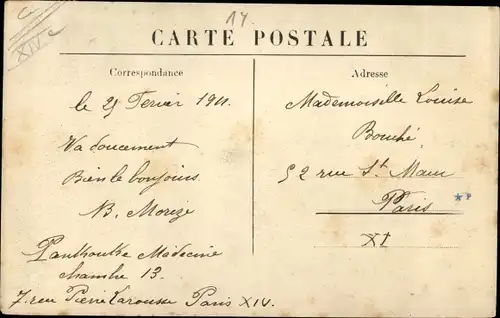 14
XIVe
CARTE POSTALE
Correspondance
le 25 Fevrier 1911.
Va doucement
Bien le bonjour.
B. Morize
Panthouthe Médecine
chambre 13.
7. rue Pierre Larousse Paris XIV.
Adresse
Mademoiselle Louise
Bouché
52 rue St. Maur
Paris
XI